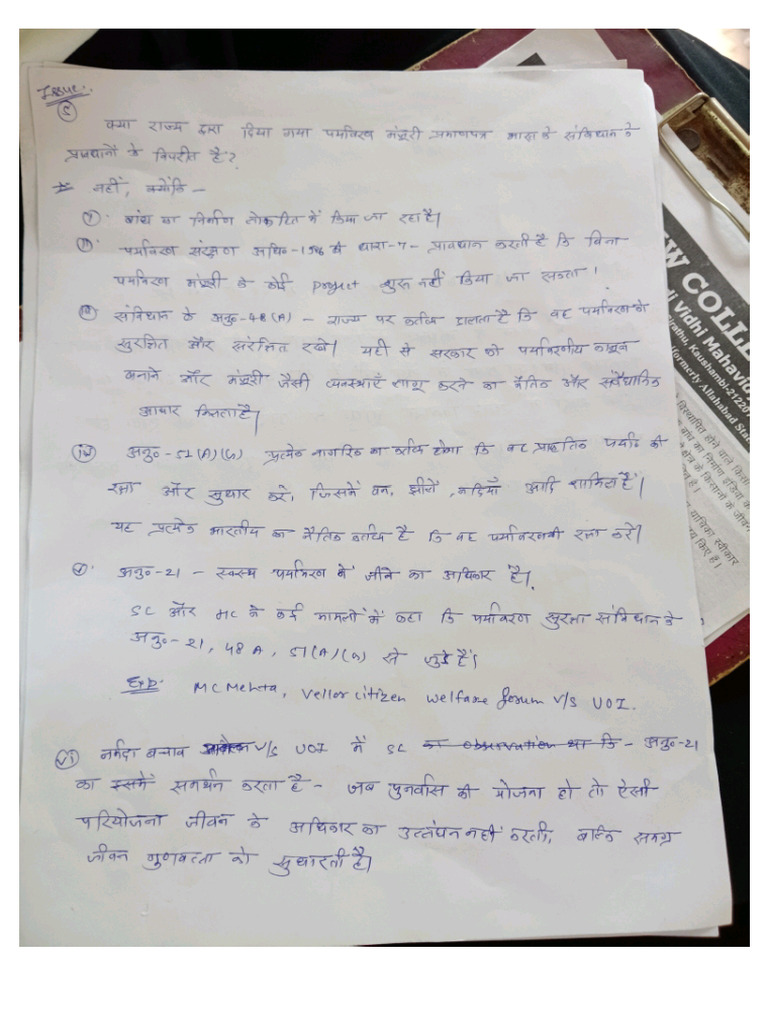 Issue:
5
क्या राज्य द्वारा दिया गया पर्यावरण मंजूरी प्रमाणपत्र भारत के संविधान के
प्रावधानों के विपरीत है?
नहीं, क्योंकि -
(i) बांध का निर्माण लोकहित में किया जा रहा है।
(ii) पर्यावरण संरक्षण अधि०-1986 की धारा-7- प्रावधान करती है कि बिना
पर्यावरण मंजूरी के कोई project शुरू नहीं किया जा सकता।
(iii) संविधान के अनु०-48(A) - राज्य पर कर्तव्य डालता है कि वह पर्यावरण को
सुरक्षित और संरक्षित रखे। यही से सरकार को पर्यावरणीय कानून
बनाने और मंजूरी जैसी व्यवस्थाएँ लागू करने का नैतिक और संवैधानिक
आधार मिलता है।
(iv) अनु०-51(A)(G) प्रत्येक नागरिक का कर्तव्य होगा कि वह प्राकृतिक पर्या० की
रक्षा और सुधार करे, जिसमें वन, झीलें, नदियाँ आदि शामिल हैं।
यह प्रत्येक भारतीय का नैतिक कर्तव्य है कि वह पर्यावरण की रक्षा करे।
(v) अनु०-21 - स्वस्थ पर्यावरण में जीने का अधिकार है।
SC और HC ने कई मामलों में कहा कि पर्यावरण सुरक्षा संविधान के
अनु०-21, 48A, 51(A)(G) से जुड़े हैं।
MC Mehta, Vellor citizen welfare forum V/S UOI.
(vi) नर्मदा बचाव V/S UOI में SC का observation था कि - अनु०-21
का इसमें समर्थन करता है - जब पुनर्वास की योजना हो तो ऐसी
परियोजना जीवन के अधिकार का उल्लंघन नहीं करती, बल्कि समग्र
जीवन गुणवत्ता को सुधारती है।
W COLLE
Vidhi Mahavid
irathu, Kaushambi-21220
formerly Allahabad Sta